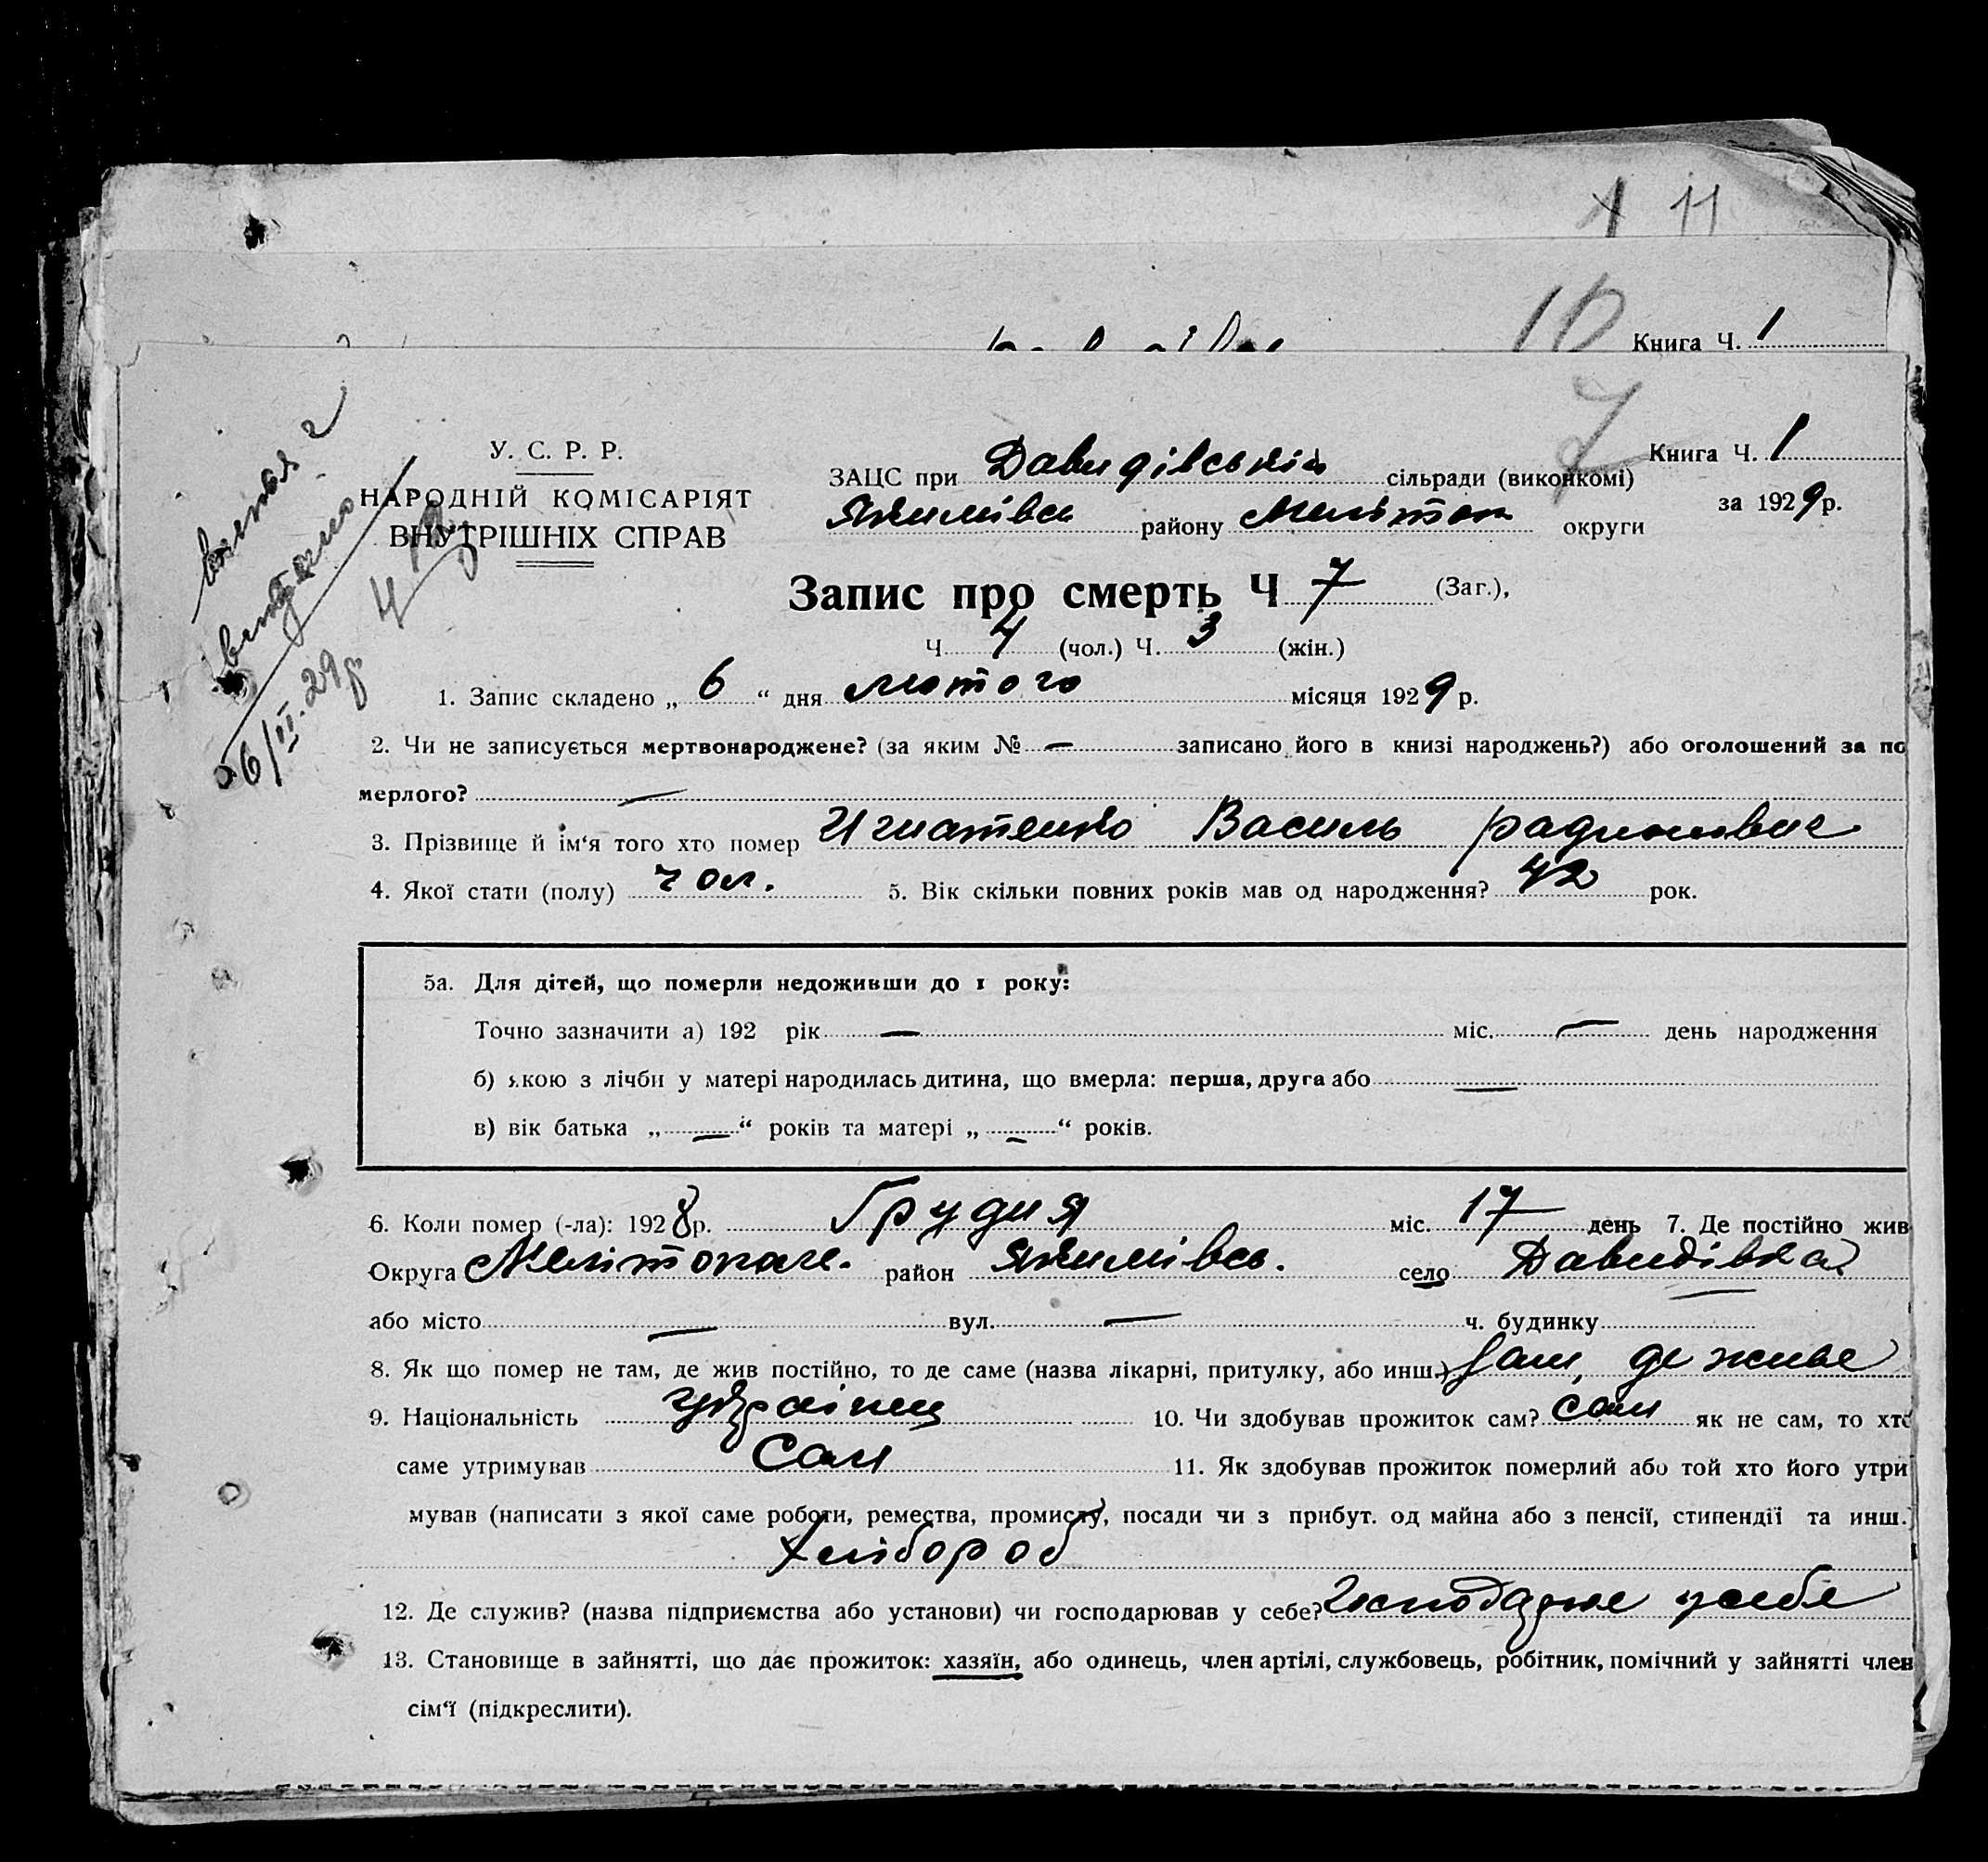 1 11
10 Книга Ч. 1
7
витяг
видано
6/II.29р
У. С. Р. Р.
НАРОДНІЙ КОМІСАРІЯТ
ВНУТРІШНІХ СПРАВ
ЗАЦС при Давидівській сільради (виконкомі)
Якимівсь району Меліт округи
Книга Ч. 1
за 1929 р.
Запис про смерть Ч 7 (Заг.),
Ч 4 (чол.) Ч. 3 (жін.)
1. Запис складено „ 6 “ дня лютого місяця 1929 р.
2. Чи не записується мертвонароджене? (за яким № — записано його в книзі народжень?) або оголошений за по
мерлого? —
3. Прізвище й ім‘я того хто помер Игнатенко Василь радионович
4. Якої стати (полу) чол. 5. Вік скільки повних років мав од народження? 42 рок.
5а. Для дітей, що померли недоживши до 1 року:
Точно зазначити а) 192 рік — міс. — день народження
б) якою з лічби у матері народилась дитина, що вмерла: перша, друга або —
в) вік батька „ — “ років та матері „ — “ років.
6. Коли помер (-ла): 1928 р. Грудня міс. 17 день 7. Де постійно жив
Округа Мелітопал. район Якимівсь. село Давидівка
або місто — вул. — ч. будинку
8. Як що помер не там, де жив постійно, то де саме (назва лікарні, притулку, або инш.) там, де живе
9. Національність україниц 10. Чи здобував прожиток сам? сам як не сам, то хто
саме утримував Сам 11. Як здобував прожиток померлий або той хто його утри
мував (написати з якої саме роботи, ремества, промислу, посади чи з прибут. од майна або з пенсії, стипендії та инш.)
Хлібороб
12. Де служив? (назва підприємства або установи) чи господарював у себе? господарює у себе
13. Становище в зайнятті, що дає прожиток: хазяїн, або одинець, член артілі, службовець, робітник, помічний у зайнятті член
сім‘ї (підкреслити).